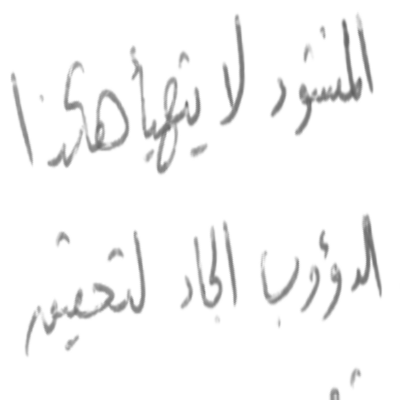 المنشود لا يتهيأ هكذا
الدؤوب الجاد لتحقيقه